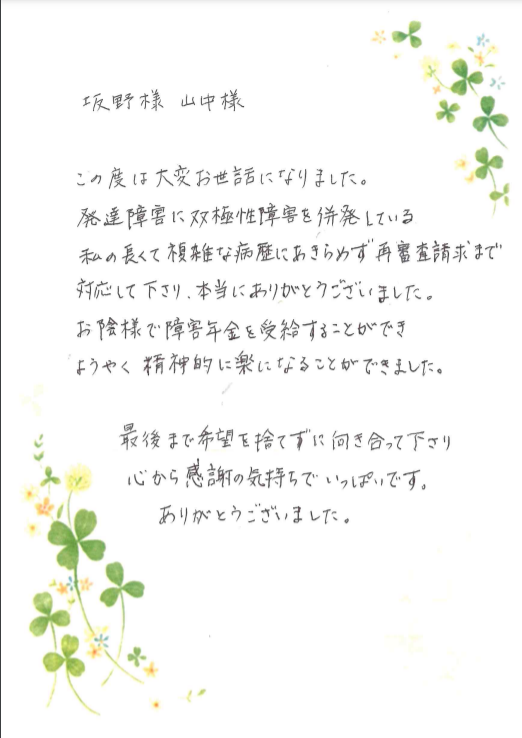 坂野様 山中様
この度は大変お世話になりました。
発達障害に双極性障害を併発している
私の長くて複雑な病歴にあきらめず再審査請求まで
対応して下さり、本当にありがとうございました。
お陰様で障害年金を受給することができ
ようやく精神的に楽になることができました。
最後まで希望を捨てずに向き合って下さり
心から感謝の気持ちでいっぱいです。
ありがとうございました。